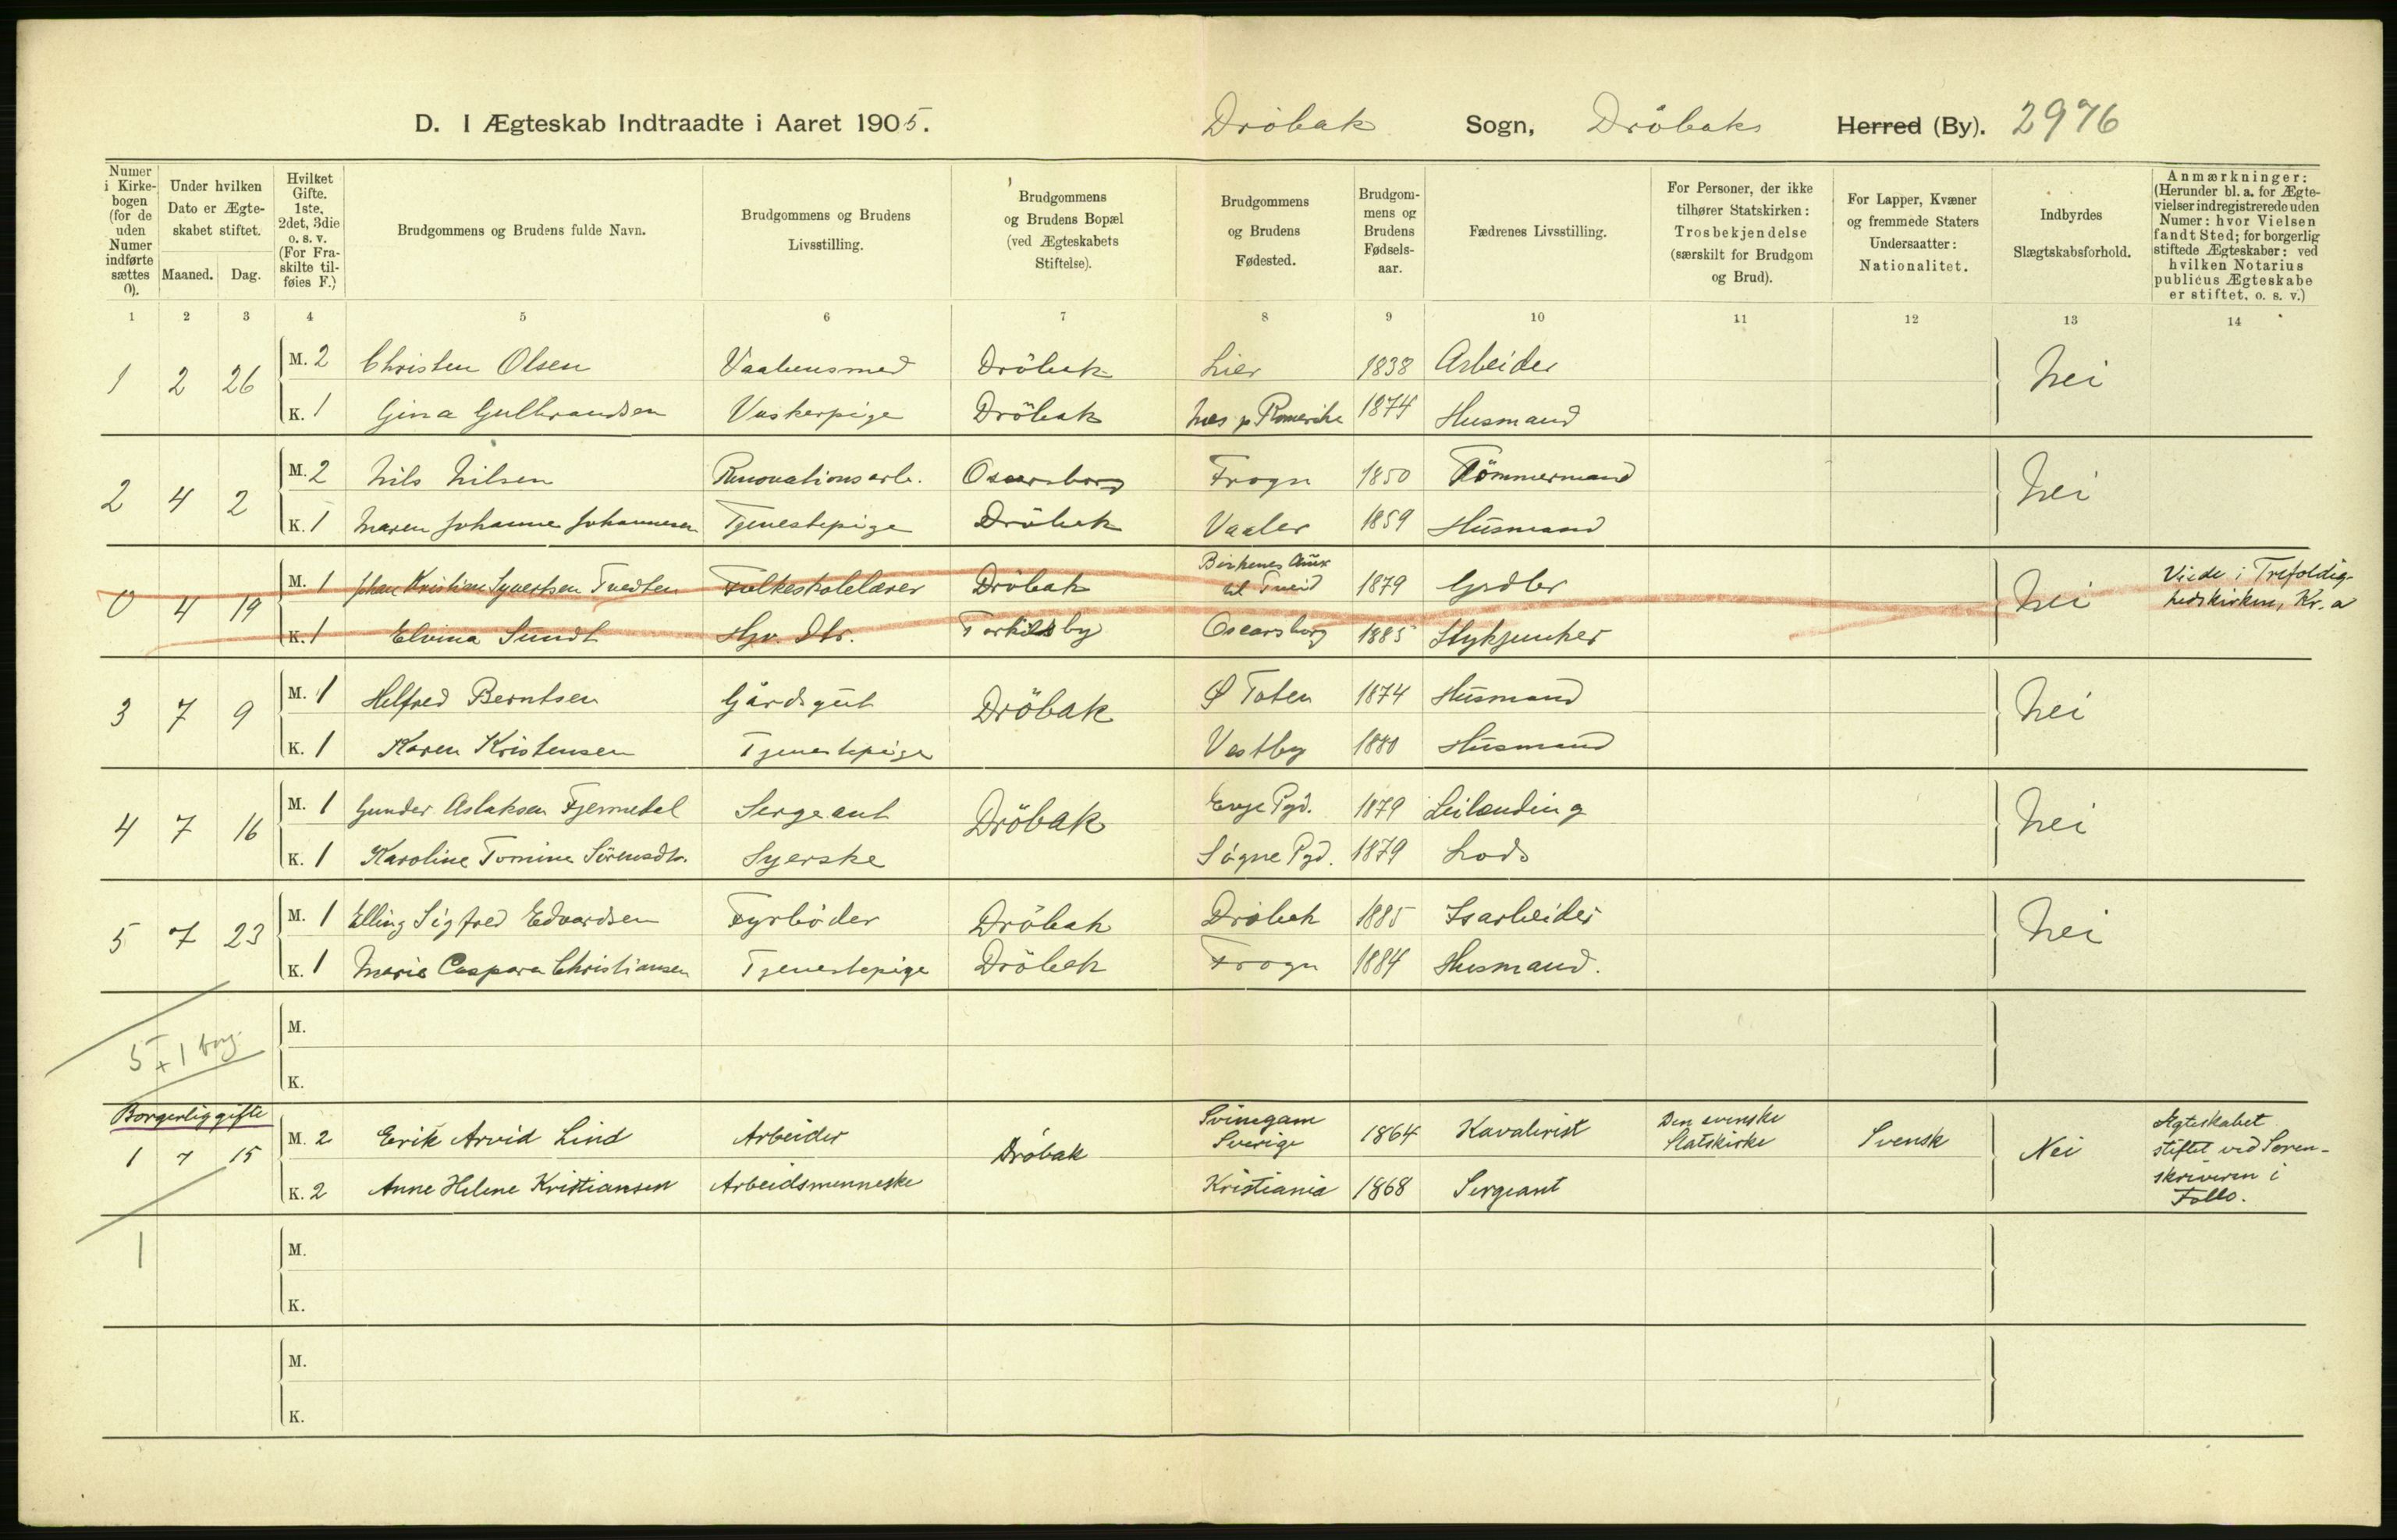 D. I Ægteskab Indtraadte i Aaret 1905. Dröbak Sogn, Dröbaks Herred (By). 2976
Numer i Kirkebogen (for de uden Numer indførte sættes 0). Under hvilken Dato er Ægteskabet stiftet. Maaned. Dag. Hvilket Gifte. 1ste, 2det, 3die o. s. v. (For Fraskilte tilføies F.) Brudgommens og Brudens fulde Navn. Brudgommens og Brudens Livsstilling. Brudgommens og Brudens Bopæl (ved Ægteskabets Stiftelse). Brudgommens og Brudens Fødested. Brudgommens og Brudens Fødselsaar. Fædrenes Livsstilling. For Personer, der ikke tilhører Statskirken: Trosbekjendelse (særskilt for Brudgom og Brud). For Lapper, Kvæner og fremmede Staters Undersaatter: Nationalitet. Indbyrdes Slægtskabsforhold. Anmærkninger: (Herunder bl. a. for Ægtevielser indregistrerede uden Numer: hvor Vielsen fandt Sted; for borgerlig stiftede Ægteskaber: ved hvilken Notarius publicus Ægteskabe er stiftet, o. s. v.)
1 2 3 4 5 6 7 8 9 10 11 12 13 14
1 2 26 M. 2 Christen Olsen Vaabensmed Dröbak Lier 1838 Arbeider Nei
K. 1 Gina Gulbrandsen Vaskerpige Dröbak Næs p Romerike 1874 Husmand
2 4 2 M. 2 Nils Nilsen Renovationsarb. Oscarsborg Frogn 1850 Tömmermand Nei
K. 1 Maren Johanne Johannesen Tjenestepige Dröbak Vaaler 1859 Husmand
0 4 19 M. 1 Johan Kristian Syvertsen Tvedten Folkeskolelærer Dröbak Birkenes 1879 Grdbr Nei Viede i Trefoldighedskirken, Kr.a
K. 1 Elvina Sundt Hjv. Dtr. Torkildsby Oscarsborg 1885 Stykjunker
3 7 9 M. 1 Helfred Berntsen Gårdsgut Dröbak Ø Toten 1874 Husmand Nei
K. 1 Karen Kristensen Tjenestepige Vestby 1880 Husmand
4 7 16 M. 1 Gunder Aslaksen Fjermedal Sergeant Dröbak Evje Pgd. 1879 Leilænding Nei
K. 1 Karoline Tomine Sörensdtr. Syerske Sögne Pgd. 1879 Lods
5 7 23 M. 1 Elling Sigfred Edvardsen Fyrböder Dröbak Dröbak 1885 Isarbeider Nei
K. 1 Marie Caspara Christiansen Tjenestepige Dröbak Frogn 1884 Husmand.
5 + 1 borg.
M.
K.
Borgerlig gifte
1 7 15 M. 2 Erik Arvid Lind Arbeider Dröbak Svinegarn Sverige 1864 Kavalerist Den svenske Statskirke Svensk Nei Ægteskabet stiftet ved Sorenskriveren i Follo.
K. 2 Anne Helene Kristiansen Arbeidsmenneske Kristiania 1868 Sergeant
1
M.
K.
M.
K.